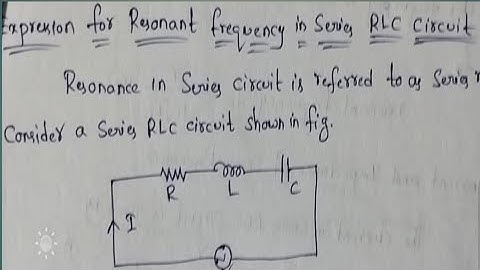 Expression for Resonant frequency in Series RLC Circuit
Resonance in Series Circuit is referred to as Series
Consider a Series RLC circuit shown in fig.
R L C
I